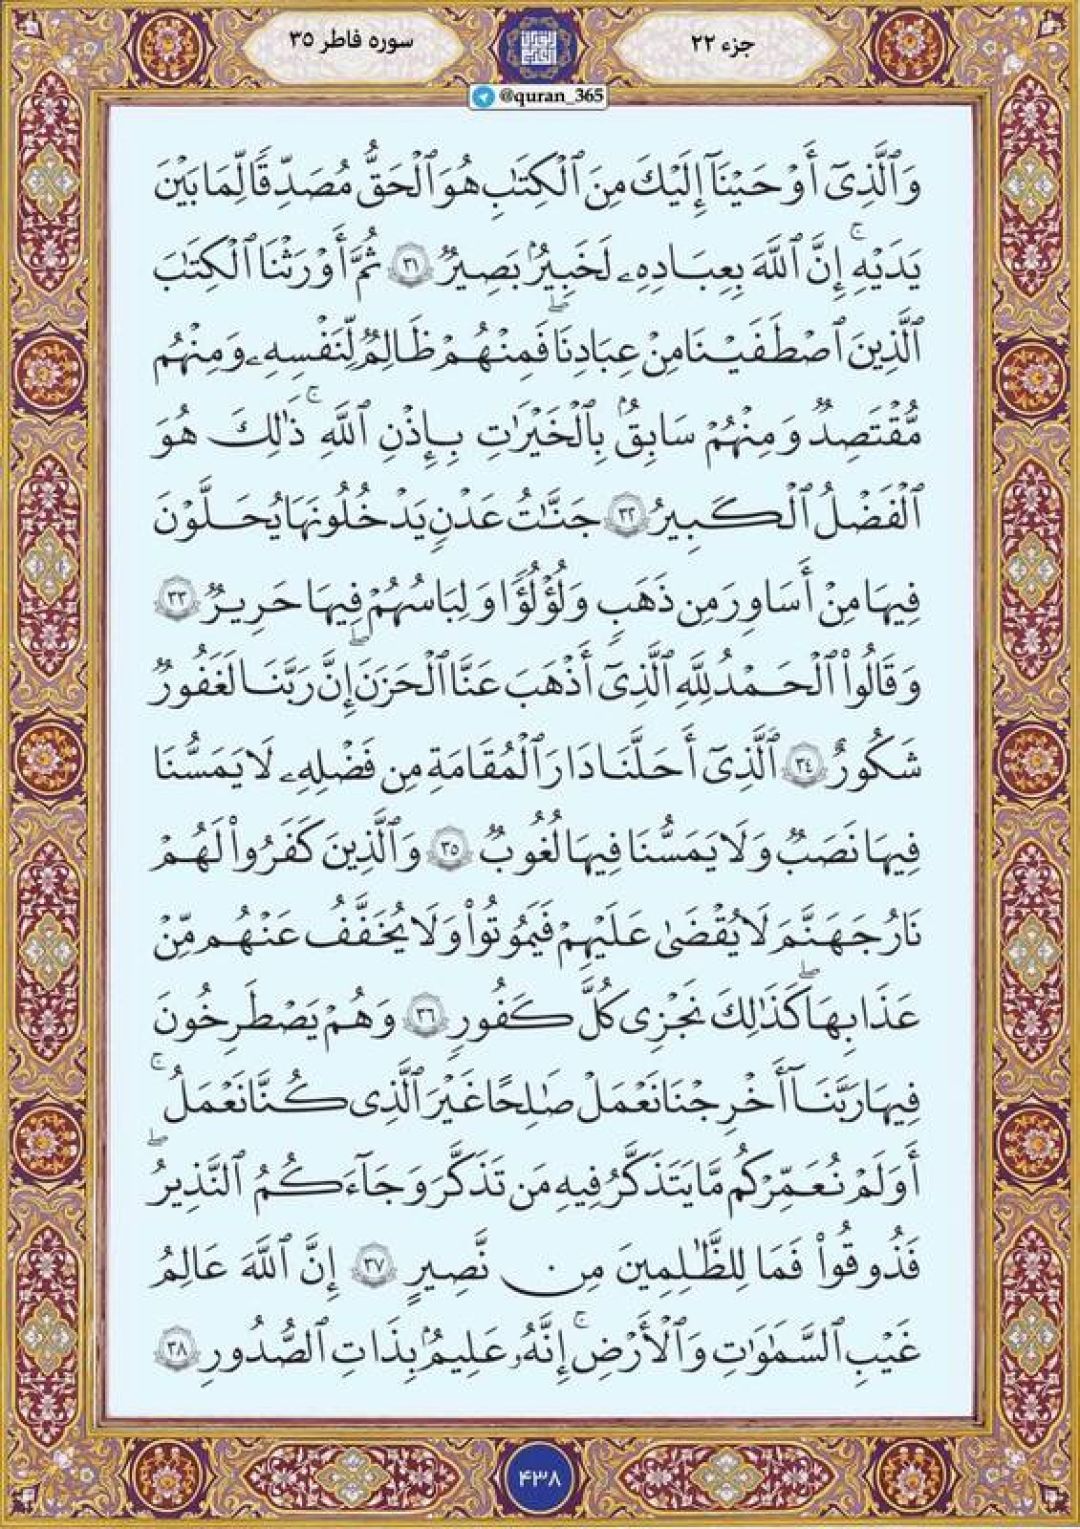 جزء ۲۲
سوره فاطر ۳۵
@quran_365
وَٱلَّذِىٓ أَوْحَيْنَآ إِلَيْكَ مِنَ ٱلْكِتَٰبِ هُوَ ٱلْحَقُّ مُصَدِّقًا لِّمَا بَيْنَ
يَدَيْهِ ۚ إِنَّ ٱللَّهَ بِعِبَادِهِۦ لَخَبِيرٌۢ بَصِيرٌ ٣١ ثُمَّ أَوْرَثْنَا ٱلْكِتَٰبَ
ٱلَّذِينَ ٱصْطَفَيْنَا مِنْ عِبَادِنَا ۖ فَمِنْهُمْ ظَالِمٌ لِّنَفْسِهِۦ وَمِنْهُم
مُّقْتَصِدٌ وَمِنْهُمْ سَابِقٌۢ بِٱلْخَيْرَٰتِ بِإِذْنِ ٱللَّهِ ۚ ذَٰلِكَ هُوَ
ٱلْفَضْلُ ٱلْكَبِيرُ ٣٢ جَنَّٰتُ عَدْنٍ يَدْخُلُونَهَا يُحَلَّوْنَ
فِيهَا مِنْ أَسَاوِرَ مِن ذَهَبٍ وَلُؤْلُؤًا ۖ وَلِبَاسُهُمْ فِيهَا حَرِيرٌ ٣٣
وَقَالُوا۟ ٱلْحَمْدُ لِلَّهِ ٱلَّذِىٓ أَذْهَبَ عَنَّا ٱلْحَزَنَ ۖ إِنَّ رَبَّنَا لَغَفُورٌ
شَكُورٌ ٣٤ ٱلَّذِىٓ أَحَلَّنَا دَارَ ٱلْمُقَامَةِ مِن فَضْلِهِۦ لَا يَمَسُّنَا
فِيهَا نَصَبٌ وَلَا يَمَسُّنَا فِيهَا لُغُوبٌ ٣٥ وَٱلَّذِينَ كَفَرُوا۟ لَهُمْ
نَارُ جَهَنَّمَ لَا يُقْضَىٰ عَلَيْهِمْ فَيَمُوتُوا۟ وَلَا يُخَفَّفُ عَنْهُم مِّنْ
عَذَابِهَا ۚ كَذَٰلِكَ نَجْزِى كُلَّ كَفُورٍ ٣٦ وَهُمْ يَصْطَرِخُونَ
فِيهَا رَبَّنَآ أَخْرِجْنَا نَعْمَلْ صَٰلِحًا غَيْرَ ٱلَّذِى كُنَّا نَعْمَلُ ۚ
أَوَلَمْ نُعَمِّرْكُم مَّا يَتَذَكَّرُ فِيهِ مَن تَذَكَّرَ وَجَآءَكُمُ ٱلنَّذِيرُ ۖ
فَذُوقُوا۟ فَمَا لِلظَّٰلِمِينَ مِن نَّصِيرٍ ٣٧ إِنَّ ٱللَّهَ عَٰلِمُ
غَيْبِ ٱلسَّمَٰوَٰتِ وَٱلْأَرْضِ ۚ إِنَّهُۥ عَلِيمٌۢ بِذَاتِ ٱلصُّدُورِ ٣٨
۴۳۸